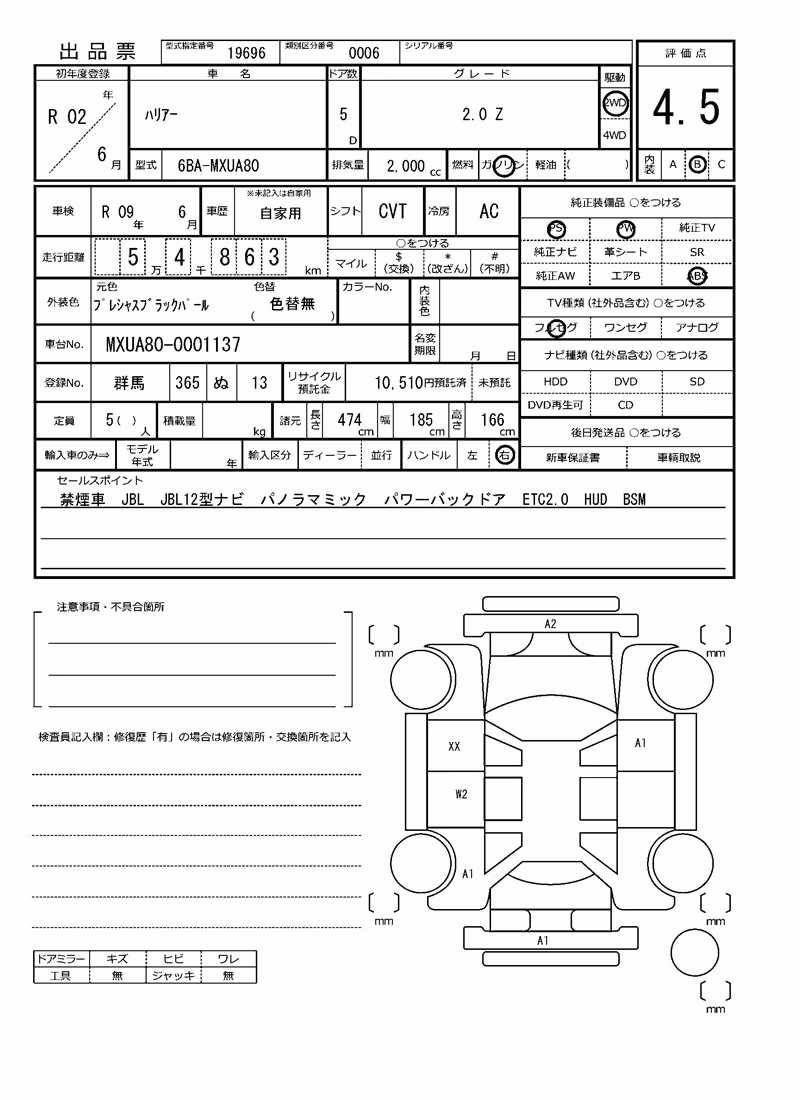 出品票 型式指定番号 19696 類別区分番号 0006 シリアル番号
評価点
4.5
内装 A B C
初年度登録 車名 ドア数 グレード 駆動
R 02 年 6 月 ハリアー 5 D 2.0 Z 2WD
4WD
型式 6BA-MXUA80 排気量 2,000 cc 燃料 ガソリン 軽油 ( )
車検 R 09 年 6 月 車歴 ※未記入は自家用 自家用 シフト CVT 冷房 AC
走行距離 5 万 4 千 8 6 3 km ○をつける
マイル $ (交換) * (改ざん) # (不明)
外装色 元色 プレシャスブラックパール 色替 ( 色替無 ) カラーNo. 内装色
車台No. MXUA80-0001137 名変期限 月 日
登録No. 群馬 365 ぬ 13 リサイクル預託金 10,510円預託済 未預託
定員 5( ) 人 積載量 kg 諸元 長さ 474 cm 幅 185 cm 高さ 166 cm
輸入車のみ⇒ モデル年式 年 輸入区分 ディーラー 並行 ハンドル 左 右
純正装備品 ○をつける
PS PW 純正TV
純正ナビ 革シート SR
純正AW エアB ABS
TV種類(社外品含む)○をつける
フルセグ ワンセグ アナログ
ナビ種類(社外品含む)○をつける
HDD DVD SD
DVD再生可 CD
後日発送品 ○をつける
新車保証書 車輌取説
セールスポイント
禁煙車 JBL JBL12型ナビ パノラマミック パワーバックドア ETC2.0 HUD BSM
注意事項・不具合箇所
検査員記入欄：修復歴「有」の場合は修復箇所・交換箇所を記入
ドアミラー キズ ヒビ ワレ
工具 無 ジャッキ 無
A2
mm mm
XX A1
W2
A1
mm mm
A1
mm